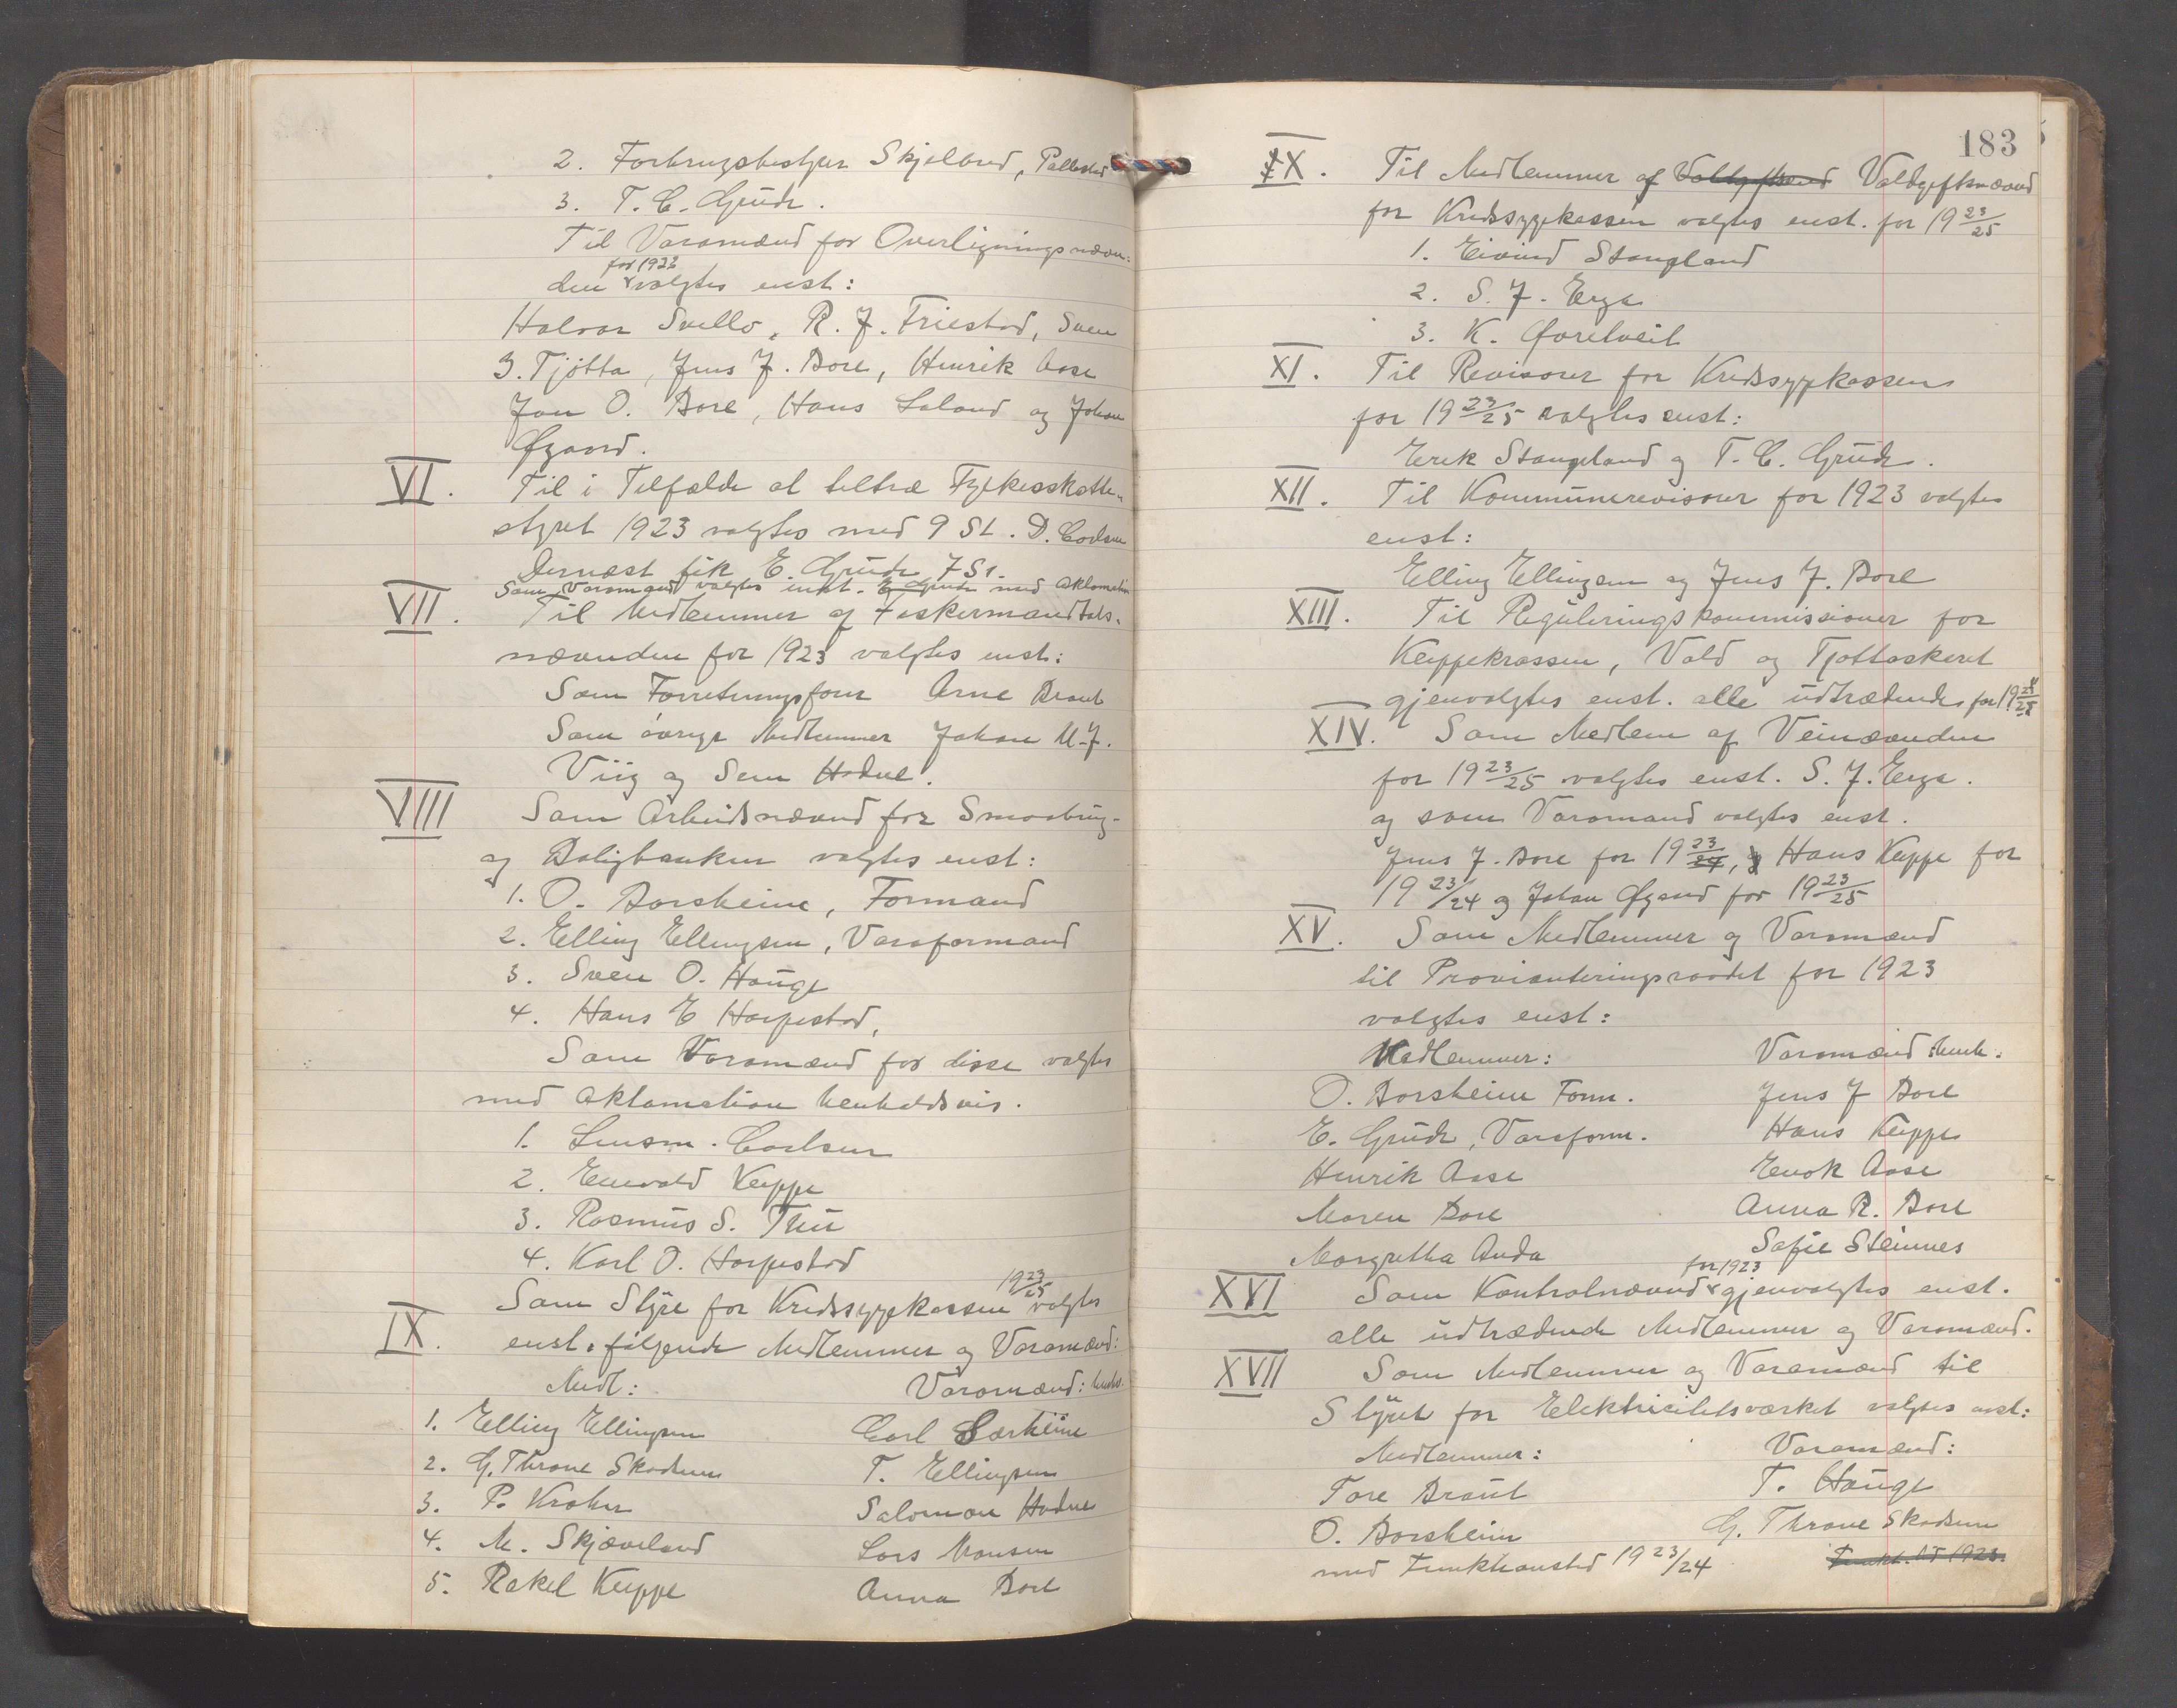 2. Forbrugsbestyrer Skjelbred, Pallestad
3. T. C. Grude.
Til Varamænd for Overligningsnævn-
for 1923
den valgtes enst:
Halvar Svello, R. J. Friestad, Sven
J. Tjötta, Jens J. Bore, Henrik Aase
Jan O. Bore, Hans Laland og Johan
Øgaard.
VI. Til i Tilfælde at tiltræ Fylkesskatte-
styret 1923 valgtes med 9 St. D. Carlsen
Dernæst fik E. Grude 7 St.
Som Varamand valgtes enst. E. Grude med Aklamation
VII. Til Medlemmer af Fiskermandtals-
nævnden for 1923 valgtes enst:
Som Forretningsförer Arne Braut
Som övrige Medlemmer Johan M. J.
Viig og Sem Hodne.
VIII Som Arbeidsnævnd for Smaabrug-
og Boligbanken valgtes enst:
1. O. Borsheim, Formand
2. Elling Ellingsen, Varaformand
3. Sven O. Hauge
4. Hans E Horpestad,
Som Varamænd for disse valgtes
med Aklamation henholdsvis.
1. Lensm. Carlsen
2. Enevald Kleppe
3. Rasmus S. Thu
4. Karl O. Horpestad
19 23/25
Som Styre for Kredssygekassen valgtes
IX. enst. følgende Medlemmer og Varamænd:
Medl: Varamænd: henhs.
1. Elling Ellingsen Carl Særheim
2. G. Throne Skadsem T. Ellingsen
3. P. Krohn Salomon Hodne
4. M. Skjæveland Lars Monsen
5. Rakel Kleppe Anna Bore
183
X. Til Medlemmer af Voldgiftsnævnd Voldgiftsnævnd
for Kredssygekassen valgtes enst. for 19 23/25
1. Eivind Stangeland
2. S. J. Erga
3. K. Øvretveit
XI. Til Revisorer for Kredssygekassen
for 19 23/25 valgtes enst:
Erik Stangeland og T. C. Grude.
XII. Til Kommunerevisorer for 1923 valgtes
enst:
Elling Ellingsen og Jens J. Bore
XIII. Til Reguleringskommissioner for
Kleppekrossen, Vold og Tjøttaskeret
gjenvalgtes enst. alle udtrædende for 19 23/25
XIV. Som Medlem af Veinævnden
for 19 23/25 valgtes enst. S. J. Erga.
og som Varamand valgtes enst.
Jens J. Bore for 19 23/24, Hans Kleppe for
19 23/24 og Johan Øgaard for 19 23/25
XV. Som Medlemmer og Varamænd
til Provianteringsraadet for 1923
valgtes enst:
Medlemmer: Varamænd: henh.
O. Borsheim Form. Jens J Bore
E. Grude, Varaform. Hans Kleppe
Henrik Aase Enok Aase
Maren Bore Anna R. Bore
Margretha Anda Sofie Steinnes
for 1923
XVI Som Kontrolnævnd gjenvalgtes enst.
alle udtrædende Medlemmer og Varamænd.
XVII Som Medlemmer og Varamænd til
Styret for Elektricitetsværket valgtes enst:
Medlemmer: Varamænd:
Tore Braut T. Hauge
O. Borsheim G. Throne Skadsem
med Funktionstid 19 23/24 Funkt. tid 1923.